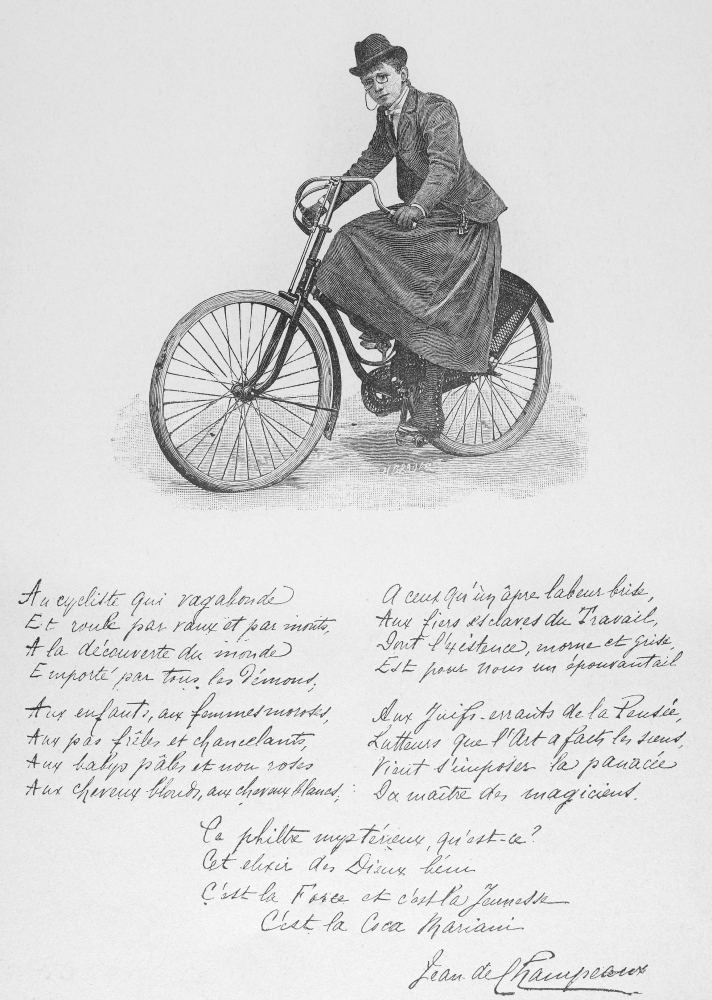 Au cycliste qui vagabonde
Et roule par vaux et par monts,
A la découverte du monde
Emporté par tous les Démons;
Aux enfants, aux femmes moroses,
Aux pas frêles et chancelants,
Aux babys pâles et non roses
Aux cheveux blonds, aux cheveux blancs;
A ceux qu'un âpre labeur brise,
Aux fiers esclaves du Travail,
Dont l'existence, morne et grise,
Est pour nous un épouvantail
Aux Juifs-errants de la Pensée,
Lutteurs que l'Art a faits les siens,
Vient s'imposer la panacée
Du maître des magiciens.
Ce philtre mystérieux, qu'est-ce?
Cet elixir des Dieux béni
C'est la Force et c'est la Jeunesse
C'est la Coca Mariani
Jean de Champeaux